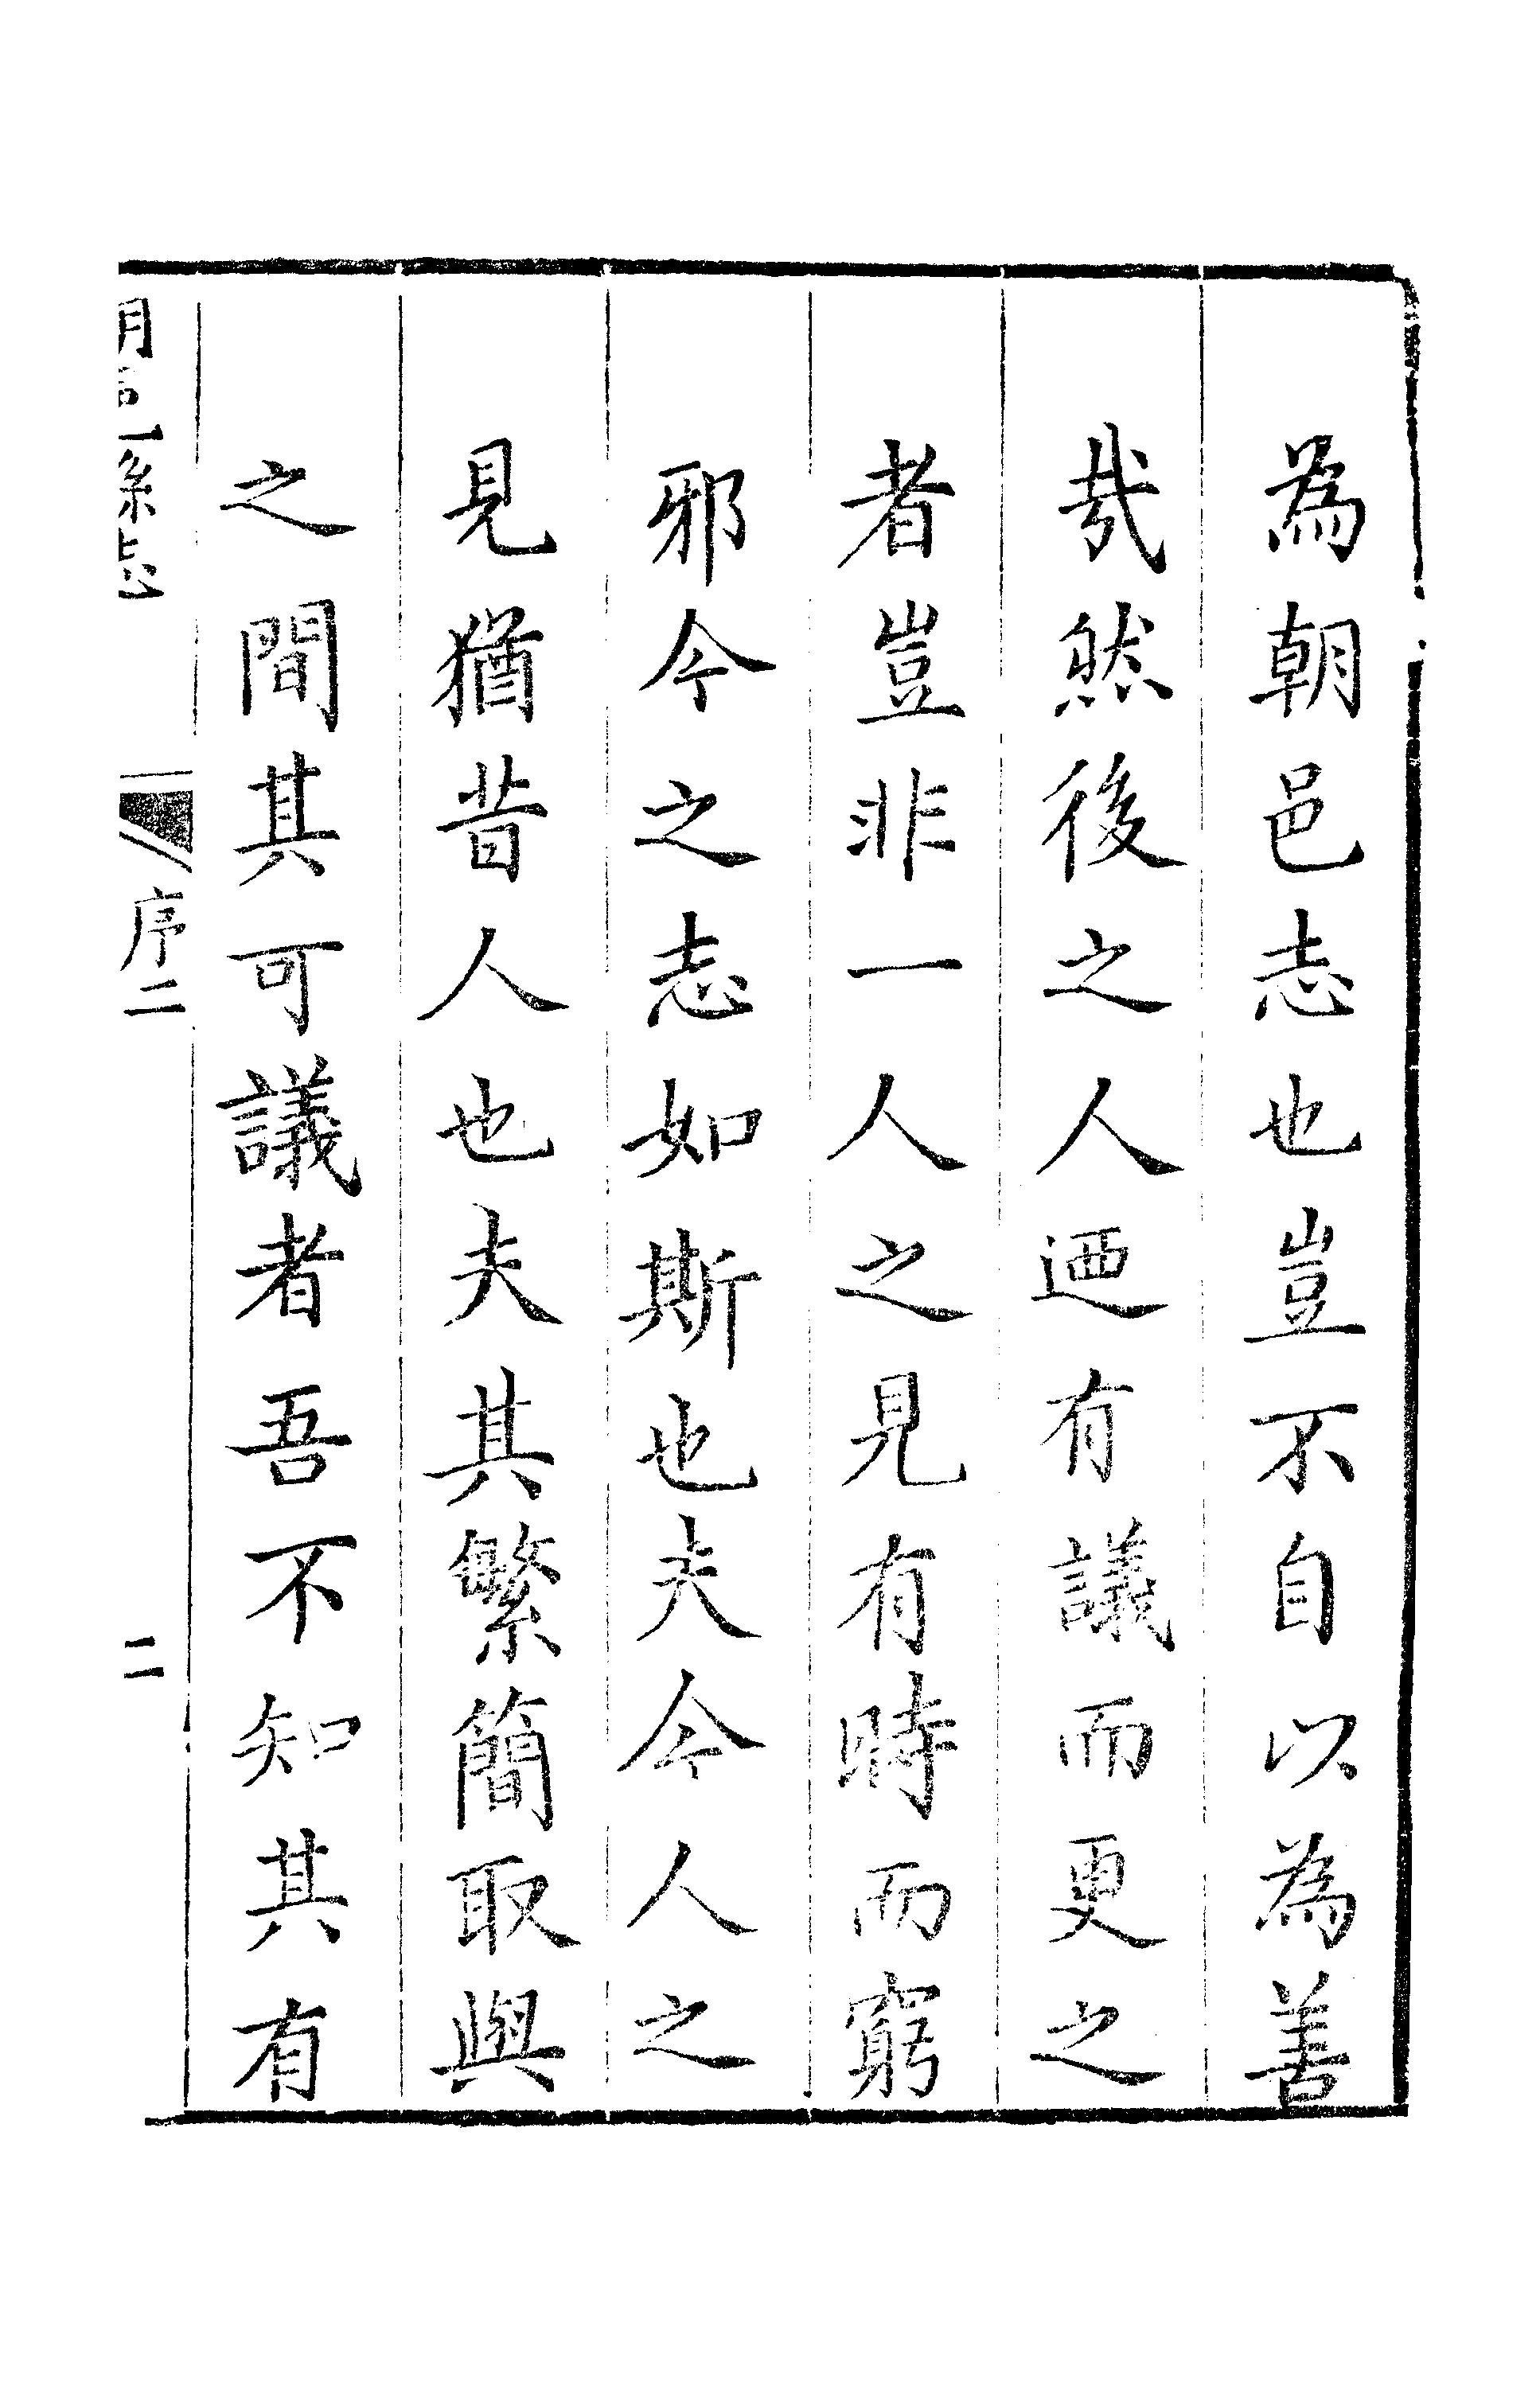 為朝邑志也豈不自以為善
哉然後之人迺有議而更之
者豈非一人之見有時而窮
邪今之志如斯也夫今人之
見猶昔人也夫其繁簡取與
之間其可議者吾不知其有
序二
二